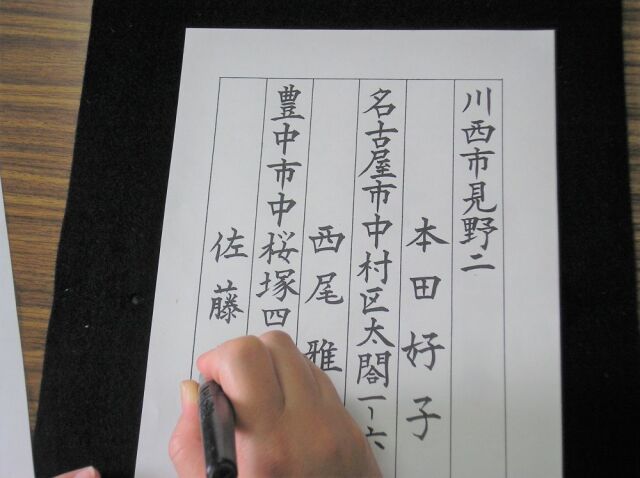 川西市見野二
本田好子
名古屋市中村区太閤一ー六
西尾雅
豊中市中桜塚四
佐藤